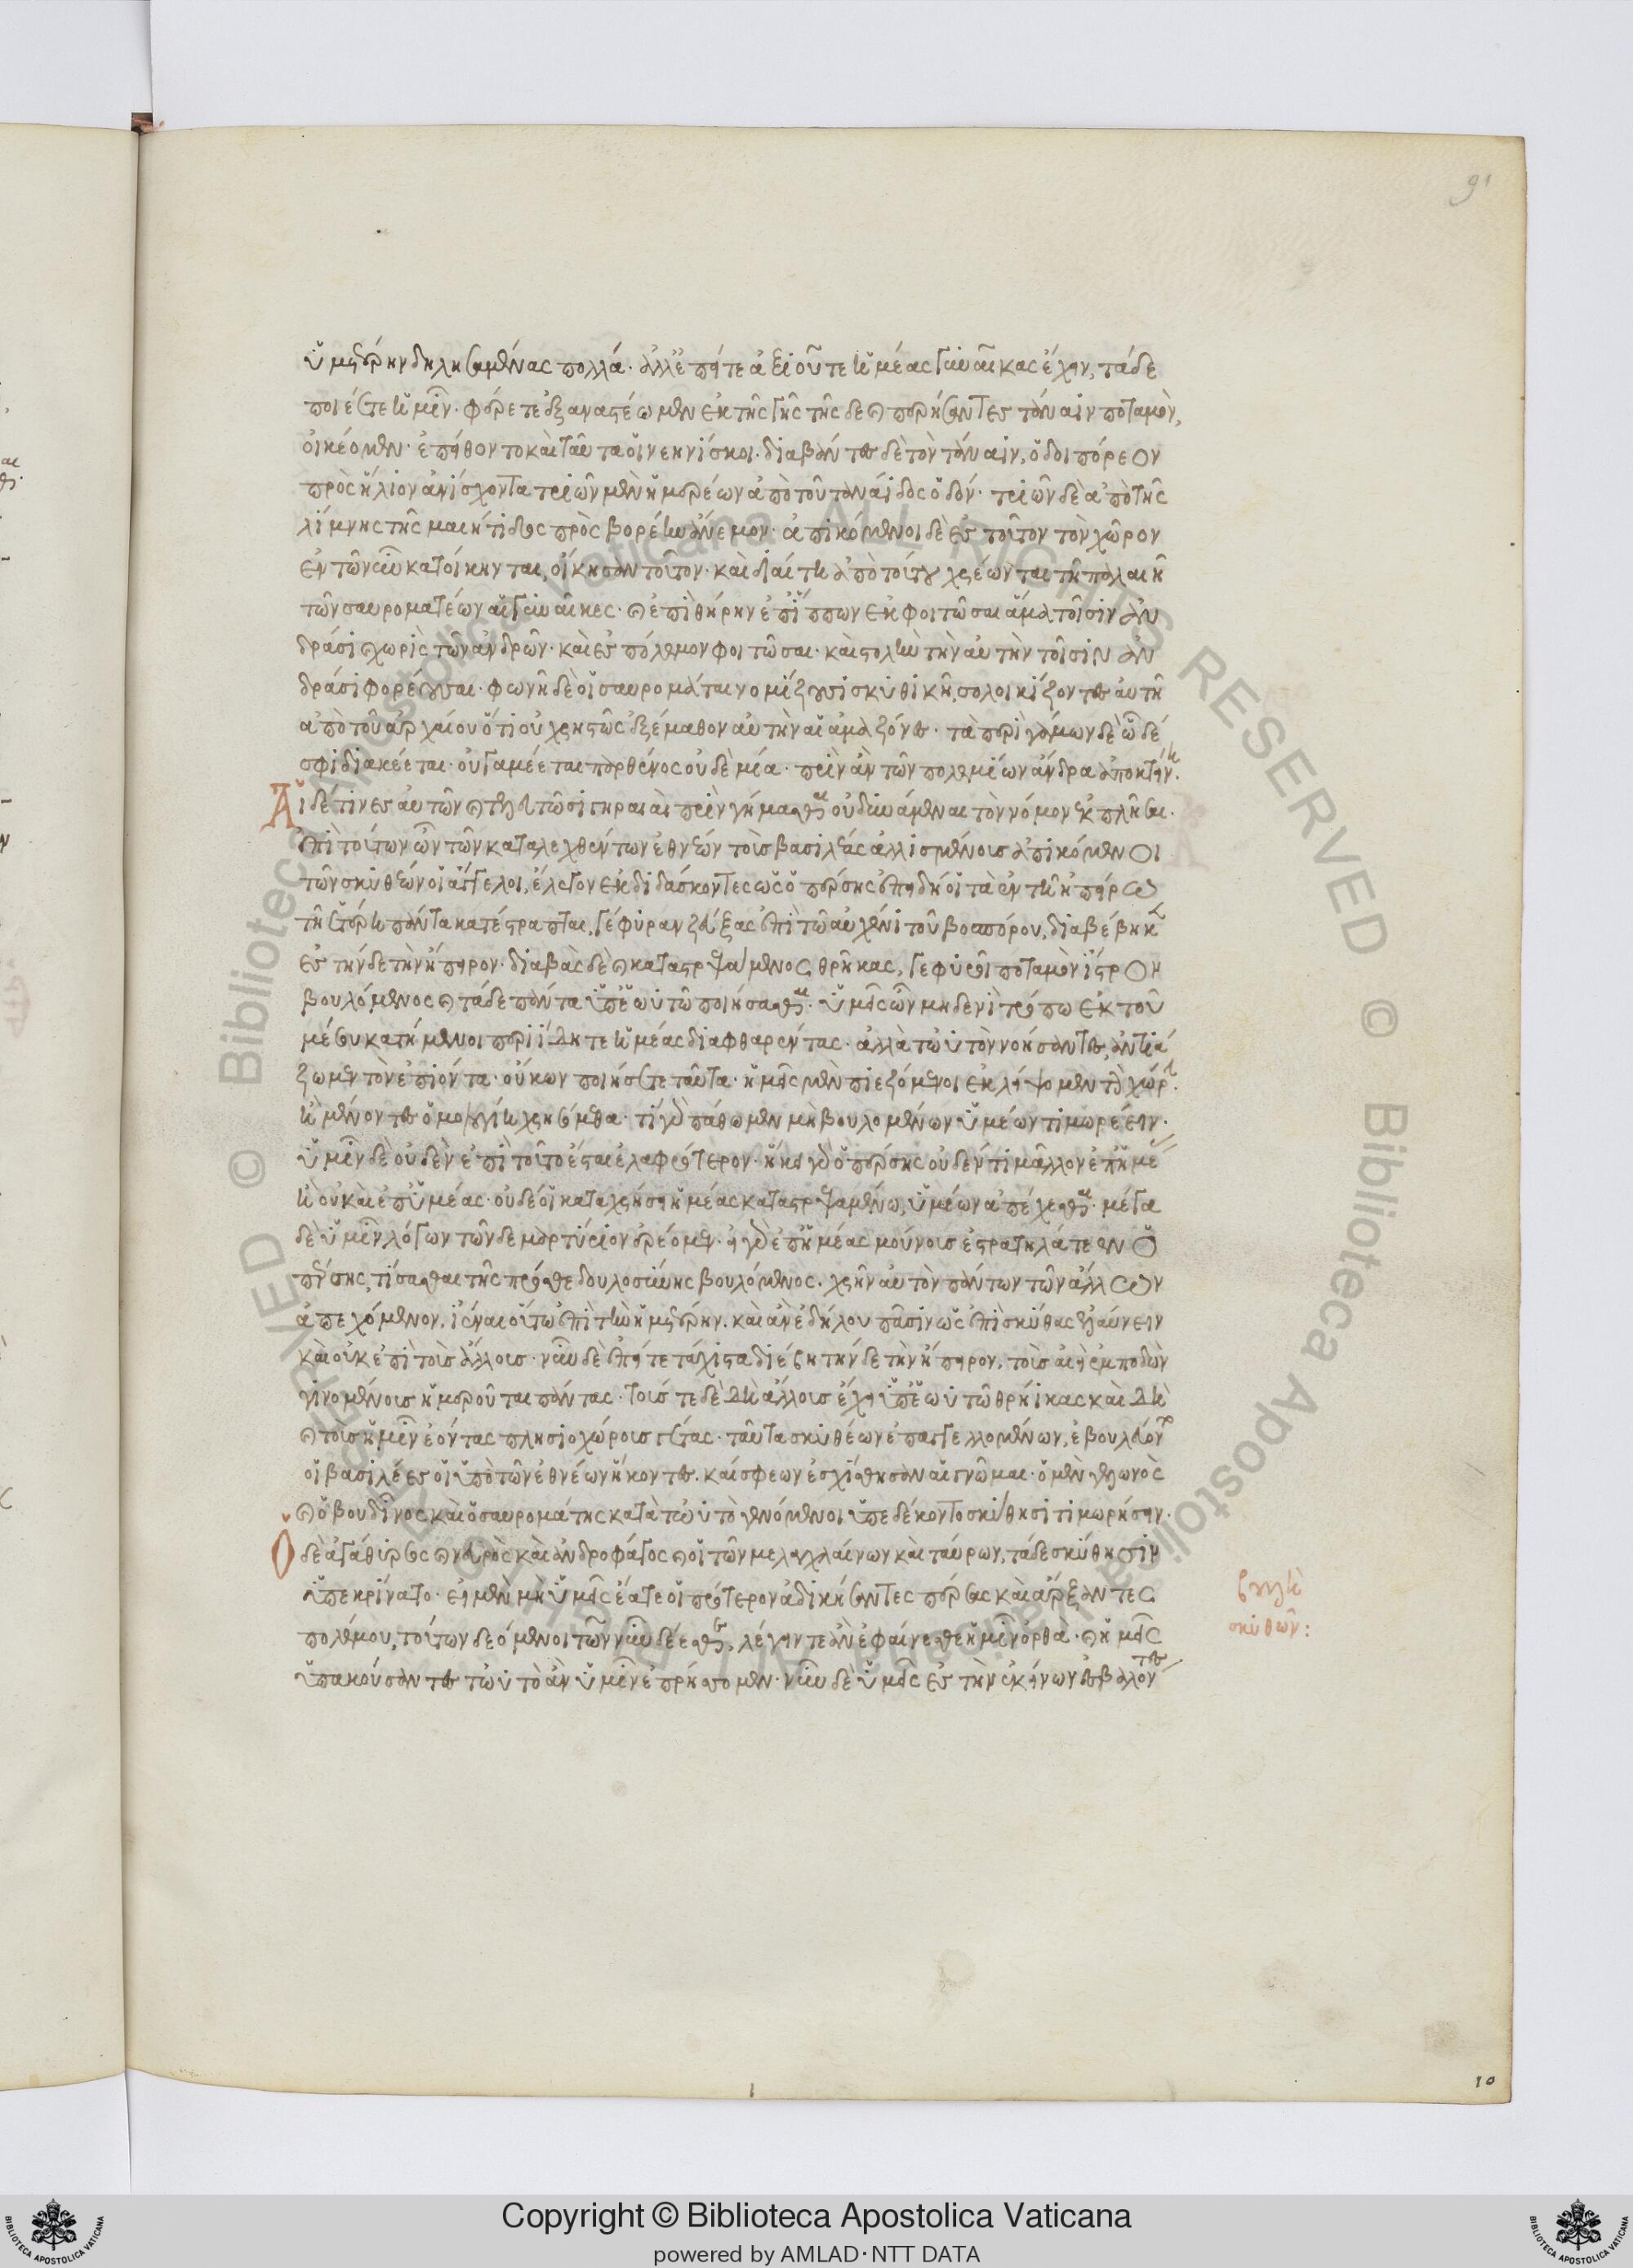 91
ὑμετέρην δηλησαμένας πολλά· ἀλλ' ἐπείτε ἀξιοῦτε ἡμέας γυναῖκας ἔχειν, τάδε
ποιέετε ἡμῖν· φέρετε ἐξαναστέωμεν ἐκ τῆς γῆς τῆσδε καὶ περήσαντες τάναϊν ποταμὸν,
οἰκέομεν· ἐπείθοντο καὶ ταῦτα οἱ νεηνίσκοι· διαβάντες δὲ τὸν τάναϊν, ὁδοιπόρεον
πρὸς ἥλιον ἀνίσχοντα τριῶν μὲν ἡμερέων ἀπὸ τοῦ τανάϊδος ὁδόν· τριῶν δὲ ἀπὸ τῆς
λίμνης τῆς μαιήτιδος πρὸς βορέην ἄνεμον· ἀπικόμενοι δὲ ἐς τοῦτον τὸν χῶρον
ἐν τῶ νῦν κατοίκηνται, οἴκησαν τοῦτον· καὶ διαίτη ἀπὸ τούτου χρέωνται τῆ παλαιῆ
τῶν σαυροματέων αἱ γυναῖκες· καὶ ἐπὶ θήρην ἐπ' ἵππων ἐκφοιτῶσαι ἅμα τοῖσιν ἀν
δράσι καὶ χωρὶς τῶν ἀνδρῶν· καὶ ἐς πόλεμον φοιτῶσαι· καὶ στολὴν τὴν αὐτὴν τοῖσιν ἀν
δράσι φορέουσαι· φωνῆ δὲ οἱ σαυρομάται νομίζουσι σκυθικῆ, σολοικίζοντες αὐτῆ
ἀπὸ τοῦ ἀρχαίου ὅτι οὐ χρηστῶς ἐξέμαθον αὐτὴν αἱ ἀμαζόνες· τὰ περὶ γάμων δὲ ὧδέ
σφι διακέεται· οὐ γαμέεται παρθένος οὐδὲ μία· πρὶν ἂν τῶν πολεμίων ἄνδρα ἀποκτείνη·
Αἱ δέ τινες αὐτῶν καὶ τελευτῶσι γηραιαὶ πρὶν γήμασθαι οὐ δυνάμεναι τὸν νόμον ἐκπλῆσαι·
ἐπὶ τούτων ὦν τῶν καταλεχθέντων ἐθνέων τοὺς βασιλέας ἁλισμένους ἀπικόμενοι
τῶν σκυθέων οἱ ἄγγελοι, ἔλεγον ἐκδιδάσκοντες ὡς ὁ πέρσης ἐπειδή οἱ τὰ ἐν τῆ ἠπείρω
τῆ ἑτέρη πάντα κατέστραπται, γέφυραν ζεύξας ἐπὶ τῶ αὐχένι τοῦ βοσπόρου, διαβέβηκε
ἐς τήνδε τὴν ἤπειρον· διαβὰς δὲ καὶ καταστρεψάμενος θρήκας, γεφυροῖ ποταμὸν ἴστρον
βουλόμενος καὶ τάδε πάντα ὑπ' ἑωυτῶ ποιήσασθαι· ὑμεῖς ὦν μηδενὶ τρόπω ἐκ τοῦ
μέσου κατήμενοι περιίδητε ἡμέας διαφθαρέντας· ἀλλὰ τὠυτὸ νοήσαντες, ἀντιά
ζωμεν τὸν ἐπιόντα· οὔκων ποιήσετε ταῦτα· ἡμεῖς μὲν πιεζόμενοι ἐκλείψομεν τὴν χώρην·
ἢ μένοντες ὁμολογίη χρησόμεθα· τί γὰρ πάθωμεν μὴ βουλομένων ὑμέων τιμωρέειν·
ὑμῖν δὲ οὐδὲν ἐπὶ τούτω ἔσται ἐλαφρότερον· ἥκει γὰρ ὁ πέρσης οὐδέν τι μᾶλλον ἐπ' ἡμέας
ἢ οὐ καὶ ἐπ' ὑμέας· οὐδέ οἱ καταχρήσει ἡμέας καταστρεψαμένω, ὑμέων ἀπέχεσθαι· μέγα
δὲ ὑμῖν λόγων τῶνδε μαρτύριον ἐρέομεν· εἰ γὰρ ἐπ' ἡμέας μούνους ἐστρατηλάτεεν ὁ
πέρσης, τίσασθαι τῆς πρόσθε δουλοσύνης βουλόμενος· χρῆν αὐτὸν πάντων τῶν ἄλλων
ἀπεχόμενον, ἰέναι οὕτω ἐπὶ τὴν ἡμετέρην· καὶ ἂν ἐδήλου πᾶσιν ὡς ἐπὶ σκύθας ἐλαύνειν
καὶ οὐκ ἐπὶ τοὺς ἄλλους· νῦν δὲ ἐπείτε τάχιστα διέβη τήνδε τὴν ἤπειρον, τοὺς αἰεὶ ἐμποδὼν
γινομένους ἡμεροῦται πάντας· τούς τε δὴ ἄλλους ἔχει ὑπ' ἑωυτῶ θρήικας καὶ δὴ
καὶ τοὺς ἡμῖν ἐόντας πλησιοχώρους γέτας· ταῦτα σκυθέων ἐπαγγελλομένων, ἐβουλεύοντο
οἱ βασιλέες οἱ ὑπὸ τῶν ἐθνέων ἥκοντες· καί σφεων ἐσχίσθησαν αἱ γνῶμαι· ὁ μὲν γελωνὸς
καὶ ὁ βουδῖνος καὶ ὁ σαυρομάτης κατὰ τὠυτὸ γενόμενοι ὑπεδέκοντο σκύθησι τιμωρήσειν·
Ὁ δὲ ἀγάθυρσος καὶ νευρὸς καὶ ἀνδροφάγος καὶ οἱ τῶν μελαγχλαίνων καὶ ταύρων, τάδε σκύθησιν
ὑπεκρίνατο· εἰ μὲν μὴ ὑμεῖς ἔατε οἱ πρότερον ἀδικήσαντες πέρσας καὶ ἄρξαντες
πολέμου, τούτων δεόμενοι τῶν νῦν δέεσθε, λέγειν τε ἂν ἐφαίνεσθε ἡμῖν ὀρθά· καὶ ἡμεῖς
ὑπακούσαντες τὠυτὸ ἂν ὑμῖν ἐπρήσσομεν· νῦν δὲ ὑμεῖς ἐς τὴν ἐκείνων ἐσβαλόντες
σκυθῶν:
10
© Biblioteca Apostolica Vaticana ALL RIGHTS RESERVED
Copyright © Biblioteca Apostolica Vaticana
powered by AMLAD·NTT DATA
BIBLIOTECA APOSTOLICA VATICANA
BIBLIOTECA APOSTOLICA VATICANA